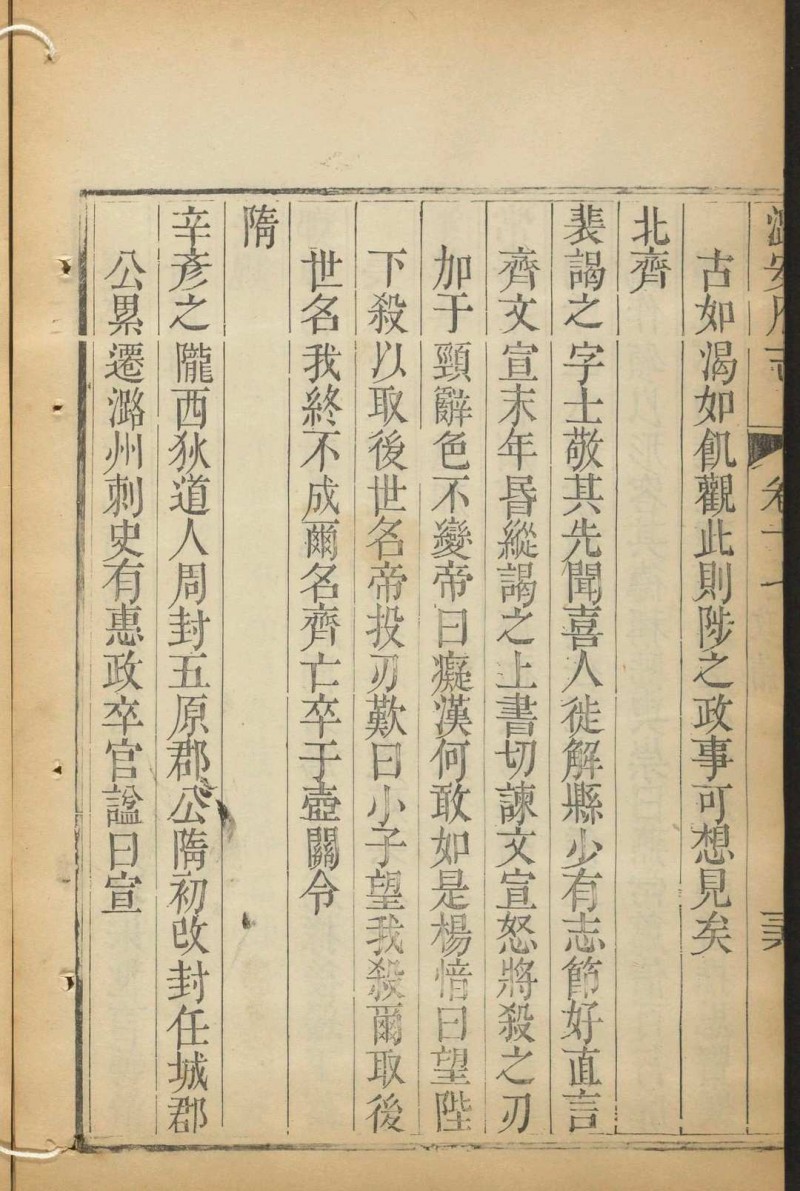 潞安府志 卷十一
古如渴如飢觀此則陟之政事可想見矣
北齊
裴謁之字士敬其先聞喜人徙解縣少有志節好直言
齊文宣末年昏縱謁之上書切諫文宣怒將殺之刃
加于頸辭色不變帝曰癡漢何敢如是楊愔曰望陛
下殺以取後世名帝投刃歎曰小子望我殺爾取後
世名我終不成爾名齊亡卒于壺關令
隋
辛彥之隴西狄道人周封五原郡公隋初改封任城郡
公累遷潞州刺史有惠政卒官諡曰宣